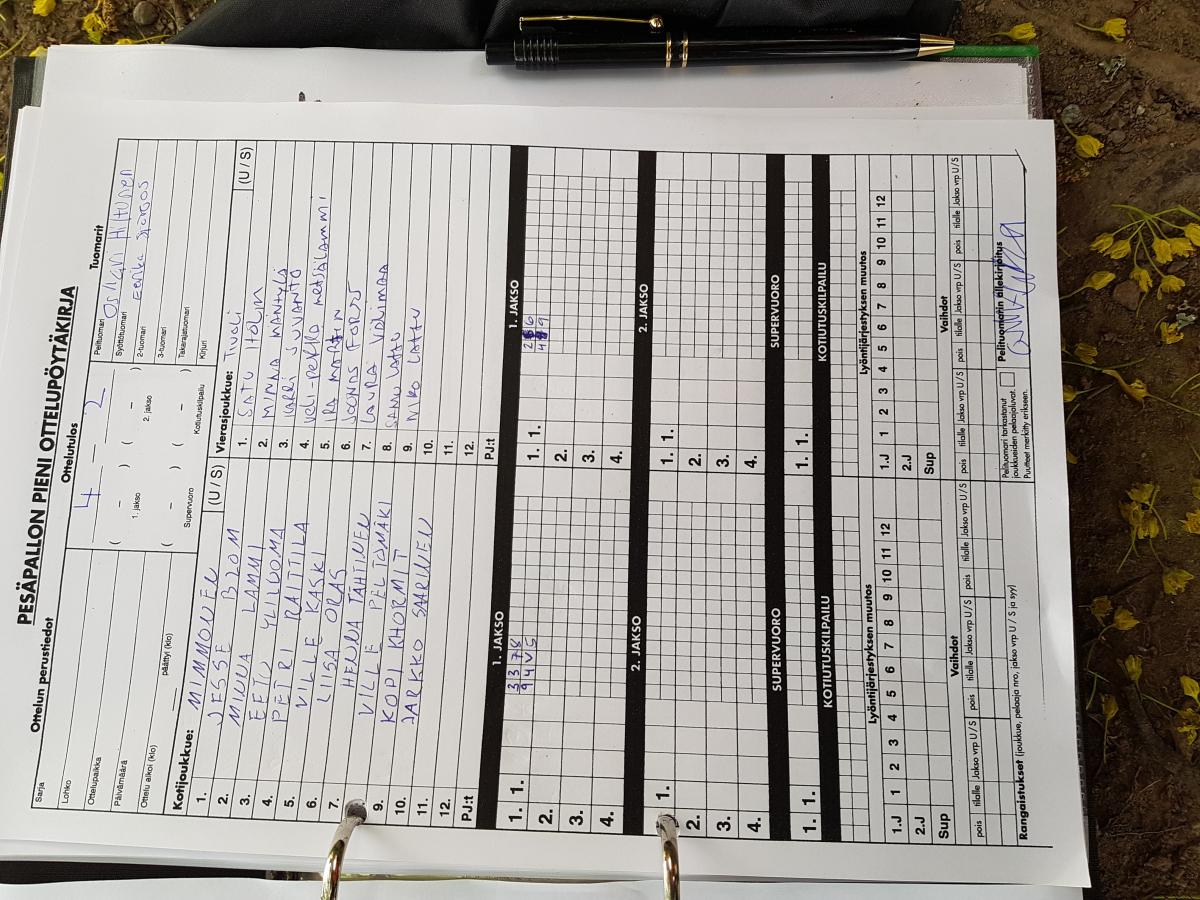 PESÄPALLON PIENI OTTELUPÖYTÄKIRJA
Ottelun perustiedot
Sarja
Lohko
Ottelupaikka
Päivämäärä
Ottelu alkoi (klo) päättyi (klo)
Ottelutulos
4 – 2
( – ) ( – )
1. jakso 2. jakso
( – ) ( – )
Supervuoro Kotiutuskilpailu
Tuomarit
Pelituomari OSKARI HILTUNEN
Syöttötuomari
2-tuomari
3-tuomari
Takarajatuomari
Kirjuri
Kotijoukkue: NIMMONEN (U / S)
1. JESSE BLOM
2. MINNA LAMMI
3. EETU YLILUOMA
4. PETRI RATTILA
5. VILLE KASKI
6. LIISA ORAS
7. HENNA TÄHTINEN
VILLE PELTOMÄKI
9. KOPI KHORMIT
10. JARKKO SAARINEN
11.
12.
PJ:t
Vierasjoukkue: TIVOLI (U / S)
1. SATU HOLM
2. MINNA MÄNTYLÄ
3. HARRI JUVANTO
4. VELI-PEKKA METSÄLAMMI
5.
6. JOONAS FORSS
7. LAURA VALIMAA
8. SAMU LATTU
9. NIKO LATTU
10.
11.
12.
PJ:t
1. JAKSO
1. 1. 3 3 7 8
9 4 V 5
2.
3.
4.
1. JAKSO
1. 1. 2 6
4 9
2.
3.
4.
2. JAKSO
1.
2.
3.
4.
2. JAKSO
1. 1.
2.
3.
4.
SUPERVUORO
1. 1.
SUPERVUORO
1. 1.
KOTIUTUSKILPAILU
KOTIUTUSKILPAILU
Lyöntijärjestyksen muutos
1.J 1 2 3 4 5 6 7 8 9 10 11 12
2.J
Sup
Lyöntijärjestyksen muutos
1.J 1 2 3 4 5 6 7 8 9 10 11 12
2.J
Sup
Vaihdot
pois tilalle Jakso vrp U / S pois tilalle Jakso vrp U / S pois tilalle Jakso vrp U / S
Vaihdot
pois tilalle Jakso vrp U / S pois tilalle Jakso vrp U / S pois tilalle Jakso vrp U / S
Rangaistukset (joukkue, pelaaja nro, jakso vrp U / S ja syy)
Pelituomari tarkastanut
joukkueiden pelaajaluvat.
Puutteet merkitty erikseen.
Pelituomarin allekirjoitus